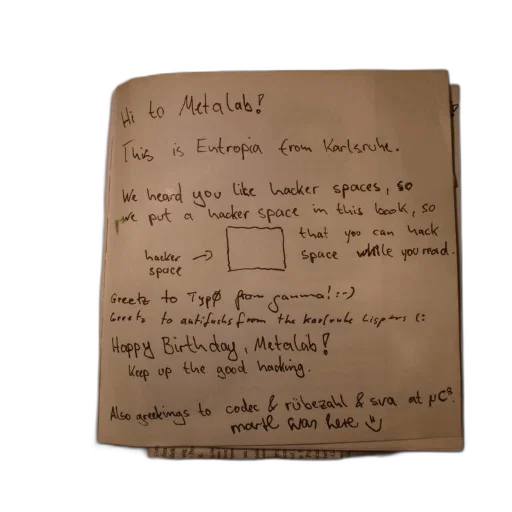 Hi to Metalab!
This is Entropia from Karlsruhe.
We heard you like hacker spaces, so
we put a hacker space in this book, so
that you can hack
space while you read.
hacker →
space
Greetz to Typø from gamma! :-)
Greetz to antifuchs from the karlsruhe lispers (:
Happy Birthday, Metalab!
Keep up the good hacking.
Also greetings to codec & rübezahl & sva at µC³.
was here